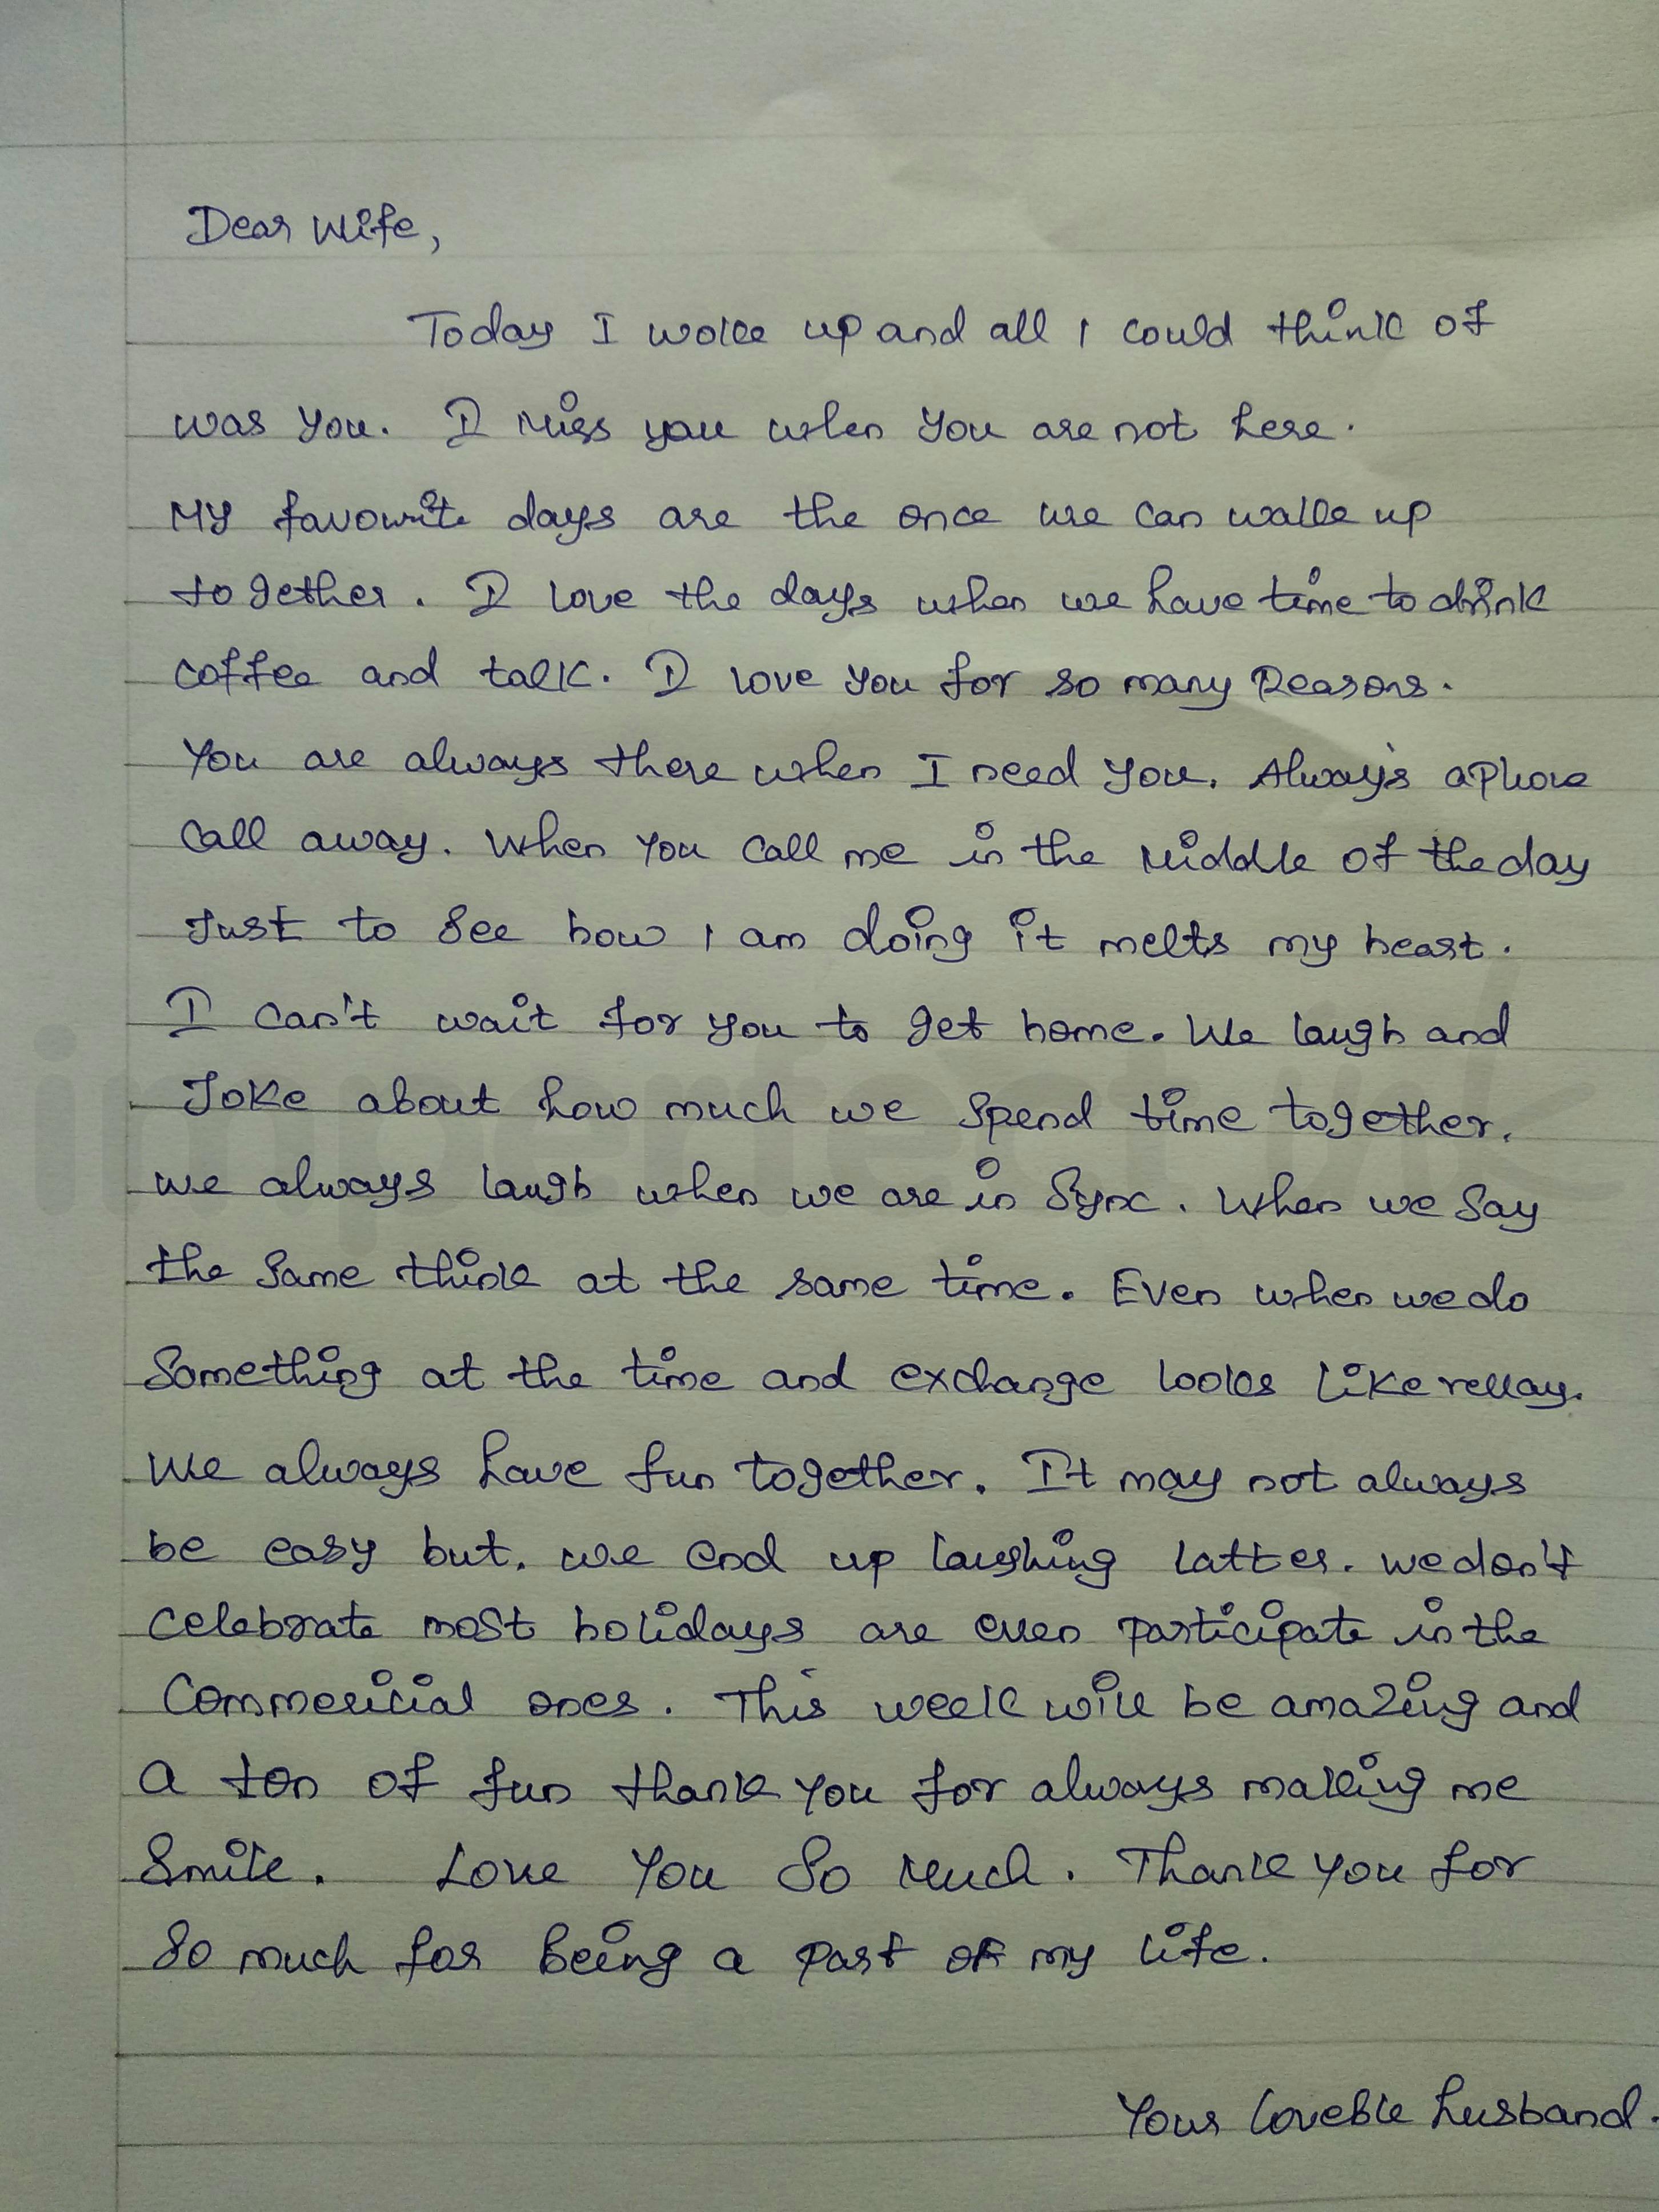 Dear Wife,
Today I woke up and all I could think of
was you. I miss you when you are not here.
My favourite days are the once we can walke up
together. I love the days when we have time to drink
coffee and talk. I love you for so many Reasons.
You are always there when I need you. Always a phone
call away. When you call me in the middle of the day
Just to see how I am doing it melts my heart.
I can't wait for you to get home. We laugh and
Joke about how much we spend time together.
we always laugh when we are in Sync. When we say
the same think at the same time. Even when we do
Something at the time and exchange looks like rellay.
We always have fun together. It may not always
be easy but. we end up laughing latter. we don't
celebrate most holidays are even participate in the
Commericial ones. This week will be amazing and
a ton of fun thank you for always making me
Smile. Love You So Much. Thank you for
So much for being a part of my life.
Your loveble husband.
imperfect